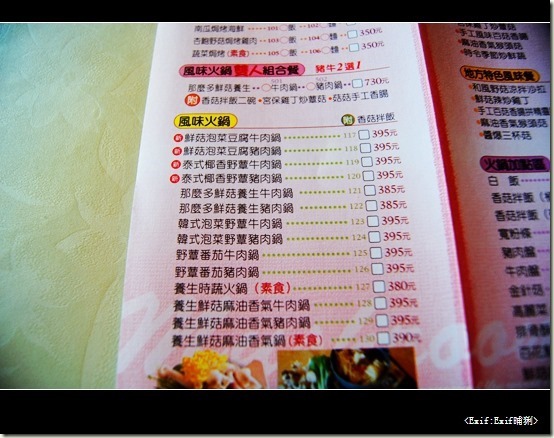 南瓜焗烤海鮮 101○飯 102○麵 □350元
杏鮑野菇焗烤雞肉 103○飯 104○麵 □350元
蔬菜焗烤(素食) 105○飯 106○麵 □350元
風味火鍋 雙人組合餐 豬牛2選1
501 502
那麼多鮮菇養生 ○牛肉鍋 ○豬肉鍋 □730元
附 香菇拌飯二碗・宮保雞丁炒蕈菇・菇菇手工香腸
風味火鍋 附 香菇拌飯
新 鮮菇泡菜豆腐牛肉鍋 117 □395元
新 鮮菇泡菜豆腐豬肉鍋 118 □395元
新 泰式椰香野蕈牛肉鍋 119 □395元
新 泰式椰香野蕈豬肉鍋 120 □395元
那麼多鮮菇養生牛肉鍋 121 □385元
那麼多鮮菇養生豬肉鍋 122 □385元
韓式泡菜野蕈牛肉鍋 123 □395元
韓式泡菜野蕈豬肉鍋 124 □395元
野蕈番茄牛肉鍋 125 □395元
野蕈番茄豬肉鍋 126 □395元
養生時蔬火鍋(素食) 127 □380元
養生鮮菇麻油香氣牛肉鍋 128 □395元
養生鮮菇麻油香氣豬肉鍋 129 □395元
養生鮮菇麻油香氣鍋(素食) 130 □390元
地方特色風味餐
和風野菇涼拌沙拉
鮮菇辣炒雞丁
手工百菇香腸拼
麻油香氣猴頭菇
醬爆三杯菇
火鍋加點區
白飯
香菇拌飯
香菇拌麵
寬粉條
豬肉盤
牛肉盤
金針菇
高麗菜
<Exif:Exif晴猁>